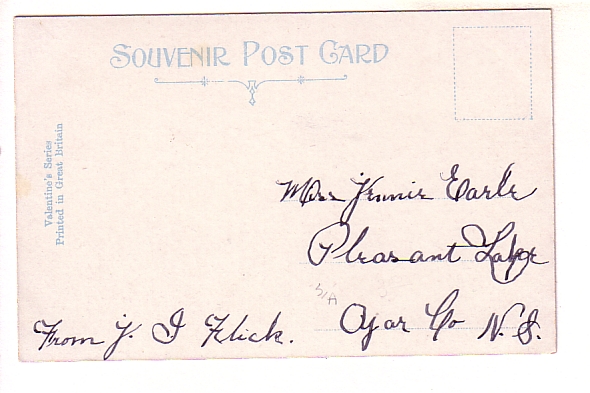 SOUVENIR POST CARD
Valentine's Series
Printed in Great Britain
Miss Jennie Earle
Pleasant Lake
Yar Co N.S.
From J. I Flick.